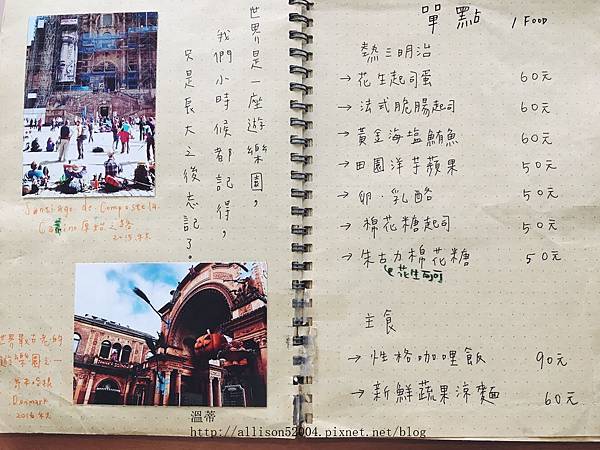 世界是一座遊樂園，
我們小時候都記得，
只是長大之後忘記了。
Santiago de Compostela
Camino 聖雅之路
2015.冬天
世界最古老的
遊樂園之一
哥本哈根
Denmark
2016冬天
單點 / Food
熱三明治
→ 花生起司蛋 60元
→ 法式脆腸起司 60元
→ 黃金海塩鮪魚 60元
→ 田園洋芋蘋果 50元
→ 卵．乳酪 50元
→ 棉花糖起司 50元
→ 朱古力棉花糖 50元
花生可可
主食
→ 性格咖哩飯 90元
→ 新鮮蔬果涼麵 60元
溫蒂
http://allison52004.pixnet.net/blog